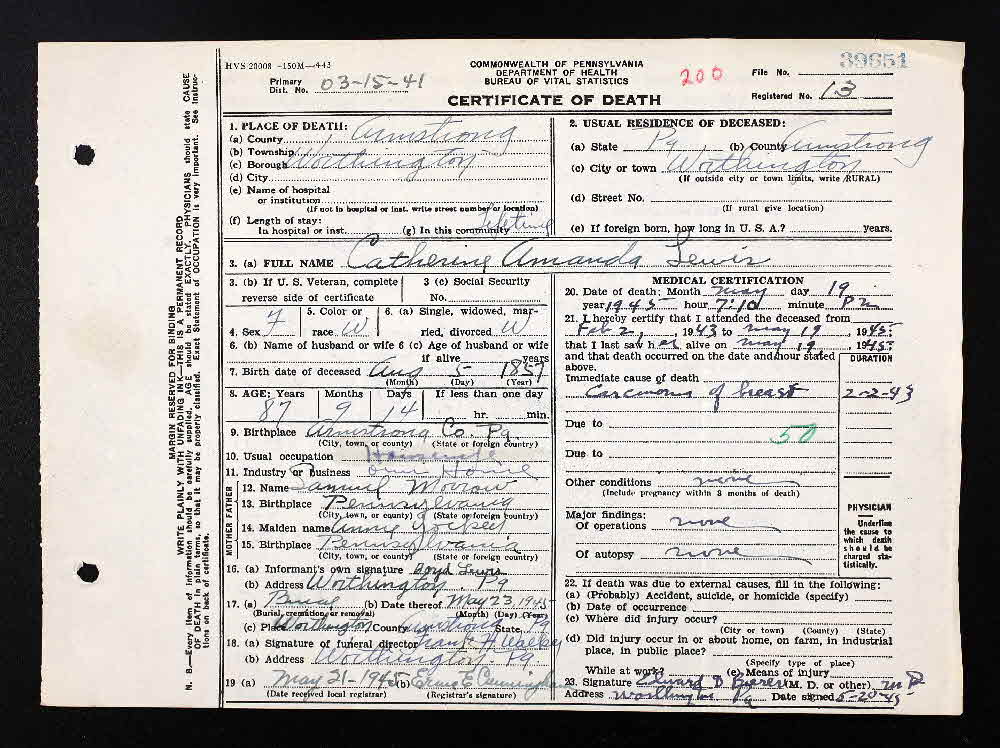 HVS 20008 -150M-4-43
COMMONWEALTH OF PENNSYLVANIA
DEPARTMENT OF HEALTH
BUREAU OF VITAL STATISTICS
CERTIFICATE OF DEATH
Primary Dist. No. 03-15-41
200
File No. 39651
Registered No. 13
1. PLACE OF DEATH:
(a) County Armstrong
(b) Township
(c) Borough Worthington
(d) City
(e) Name of hospital
or institution
(If not in hospital or inst. write street number or location)
(f) Length of stay:
In hospital or inst. (g) In this community Lifetime
2. USUAL RESIDENCE OF DECEASED:
(a) State Pa (b) County Armstrong
(c) City or town Worthington
(If outside city or town limits, write RURAL)
(d) Street No.
(If rural give location)
(e) If foreign born, how long in U. S. A.? years.
3. (a) FULL NAME Catherine Amanda Lewis
3. (b) If U. S. Veteran, complete
reverse side of certificate
3 (c) Social Security
No.
4. Sex F
5. Color or
race W
6. (a) Single, widowed, mar-
ried, divorced W
6. (b) Name of husband or wife 6 (c) Age of husband or wife
if alive years
7. Birth date of deceased Aug 5- 1857
(Month) (Day) (Year)
8. AGE: Years Months Days If less than one day
87 9 14 hr. min.
9. Birthplace Armstrong Co. Pa
(City, town, or county) (State or foreign country)
10. Usual occupation Housewife
11. Industry or Business Own Home
FATHER
12. Name Samuel Morrow
13. Birthplace Pennsylvania
(City, town, or county) (State or foreign country)
MOTHER
14. Maiden name Annie
15. Birthplace Pennsylvania
(City, town, or county) (State or foreign country)
16. (a) Informant's own signature Boyd Lewis
(b) Address Worthington Pa
17. (a) Burial (b) Date thereof May 23, 1945
(Burial, cremation, or removal) (Month) (Day) (Year)
(c) Place Worthington County Armstrong State Pa
18. (a) Signature of funeral director
(b) Address Worthington. Pa
19 (a) May 21-1945 (b) E. Cunningham
(Date received local registrar) (Registrar's signature)
MEDICAL CERTIFICATION
20. Date of death: Month May day 19
year 1945 hour 7:10 minute P m
21. I hereby certify that I attended the deceased from
Feb 2, 1943 to May 19, 1945
that I last saw her alive on May 19, 1945
and that death occurred on the date and hour stated
above.
DURATION
Immediate cause of death
Carcinoma of breast 2-2-43
Due to
50
Due to
Other conditions none
(Include pregnancy within 3 months of death)
Major findings:
Of operations none
Of autopsy none
PHYSICIAN
Underline
the cause to
which death
should be
charged sta-
tistically.
22. If death was due to external causes, fill in the following:
(a) (Probably) Accident, suicide, or homicide (specify)
(b) Date of occurrence
(c) Where did injury occur?
(City or town) (County) (State)
(d) Did injury occur in or about home, on farm, in industrial
place, in public place?
(Specify type of place)
While at work? (e) Means of injury
23. Signature Edward D. (M. D. or other) MD
Address Worthington Pa Date signed 5-20-45
MARGIN RESERVED FOR BINDING
WRITE PLAINLY WITH UNFADING INK—THIS IS A PERMANENT RECORD
N. B.—Every item of information should be carefully supplied. AGE should be stated EXACTLY. PHYSICIANS should state CAUSE
OF DEATH in plain terms, so that it may be properly classified. Exact Statement of OCCUPATION is very important. See instruc-
tions on back of certificate.